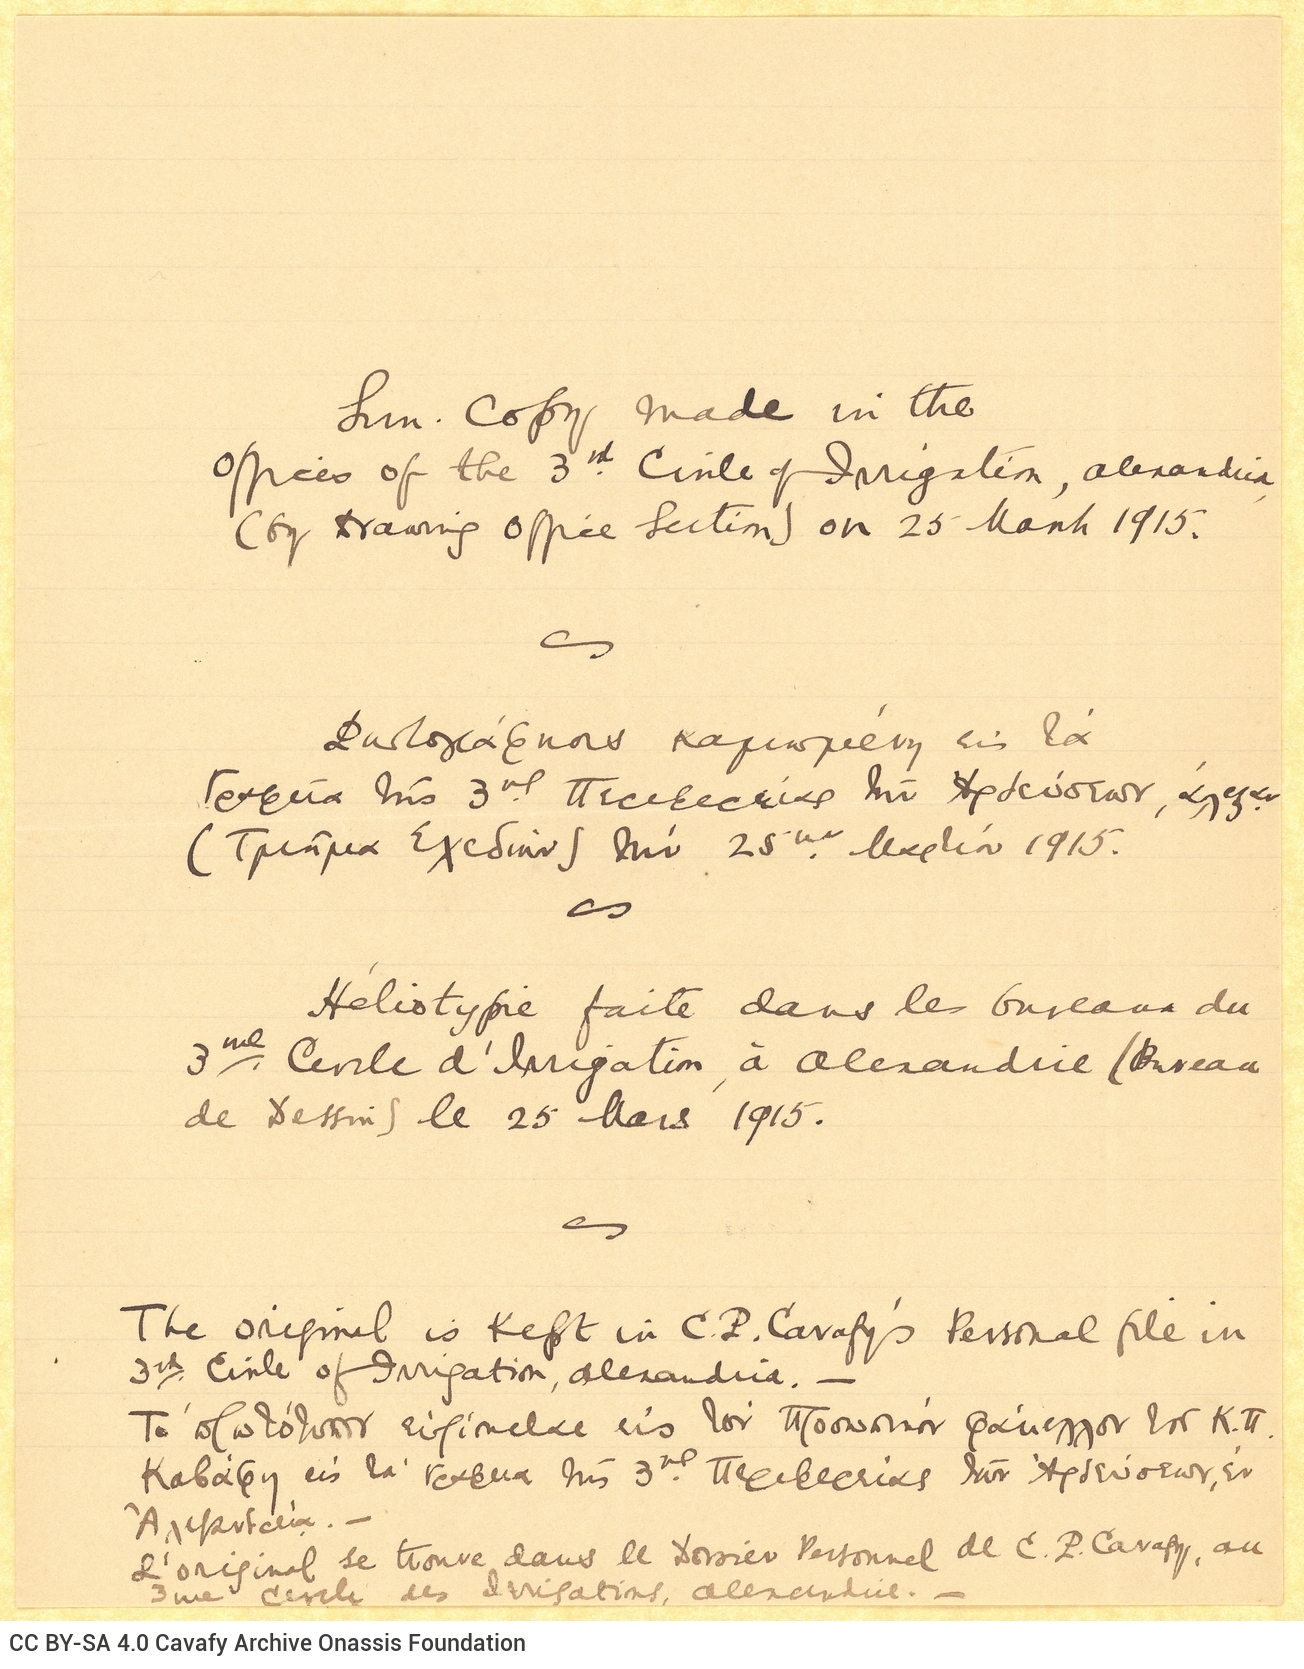 Sun. Copy made in the
Offices of the 3rd. Circle of Irrigation, Alexandria,
(by Drawing Office Section) on 25 March 1915.
Φωτογράφησις καμωμένη εις τά
Γραφεία τής 3ης. Περιφερείας τών Αρδεύσεων, Αλεξαν
(Τμήμα Σχεδίων) τήν 25ην. Μαρτίου 1915.
Héliotypie faite dans les bureaux du
3me. Cercle d'Irrigation, à Alexandrie (Bureau
de Dessin) le 25 Mars 1915.
The original is kept in C.P. Cavafy's Personal file in
3rd. Circle of Irrigation, Alexandria. —
Τό πρωτότυπον ευρίσκεται εις τον Προσωπικόν φάκελλον του Κ.Π.
Καβάφη εις τα γραφεια τής 3ης. Περιφερείας τών Αρδεύσεων, έν
Αλεξανδρεία. —
L'original se trouve dans le Dossier Personnel de C.P. Cavafy, au
3me Cercle des Irrigations, Alexandrie. —
CC BY-SA 4.0 Cavafy Archive Onassis Foundation